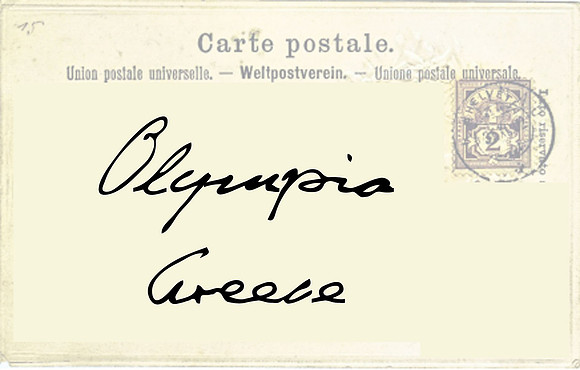 15
Carte postale.
Union postale universelle. — Weltpostverein. — Unione postale universale.
HELVETIA
2
Olympia
Greece